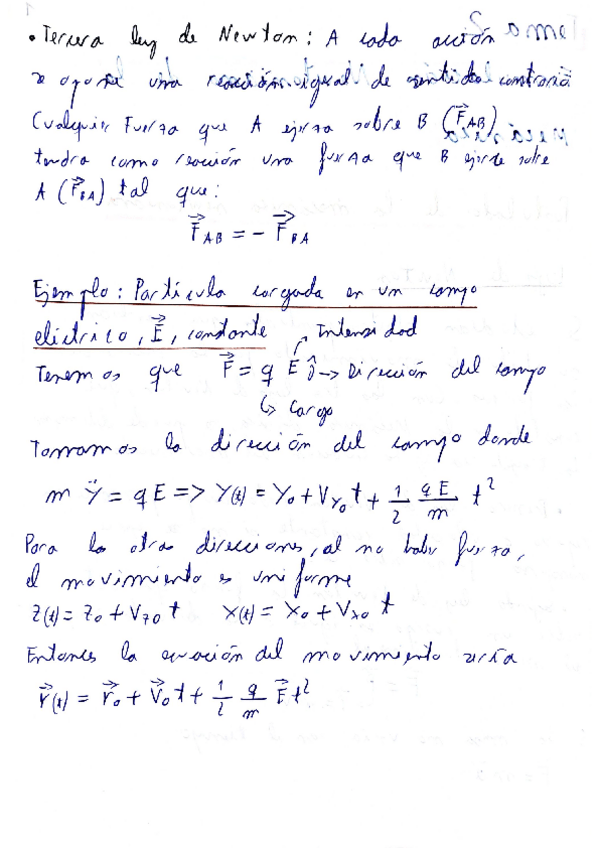 • Tercera ley de Newton: A cada acción
se opone una reacción igual de sentido contrario
Cualquier Fuerza que A ejerza sobre B (F⃗AB)
tendra como reacción una fuerza que B ejerce sobre
A (F⃗BA) tal que:
F⃗AB = - F⃗BA
Ejemplo: Partícula cargada en un campo
eléctrico, E⃗, constante
Intensidad
Tenemos que F⃗ = q E ĵ → Dirección del campo
↳ Carga
Tomamos la dirección del campo donde
m ÿ = q E => Y(t) = Y₀ + Vy₀ t + 1/2 qE/m t²
Para las otras direcciones, al no haber fuerza,
el movimiento es uniforme
Z(t) = Z₀ + Vz₀ t X(t) = X₀ + Vx₀ t
Entonces la ecuación del movimiento sería
r⃗(t) = r⃗₀ + V⃗₀ t + 1/2 q/m E⃗ t²